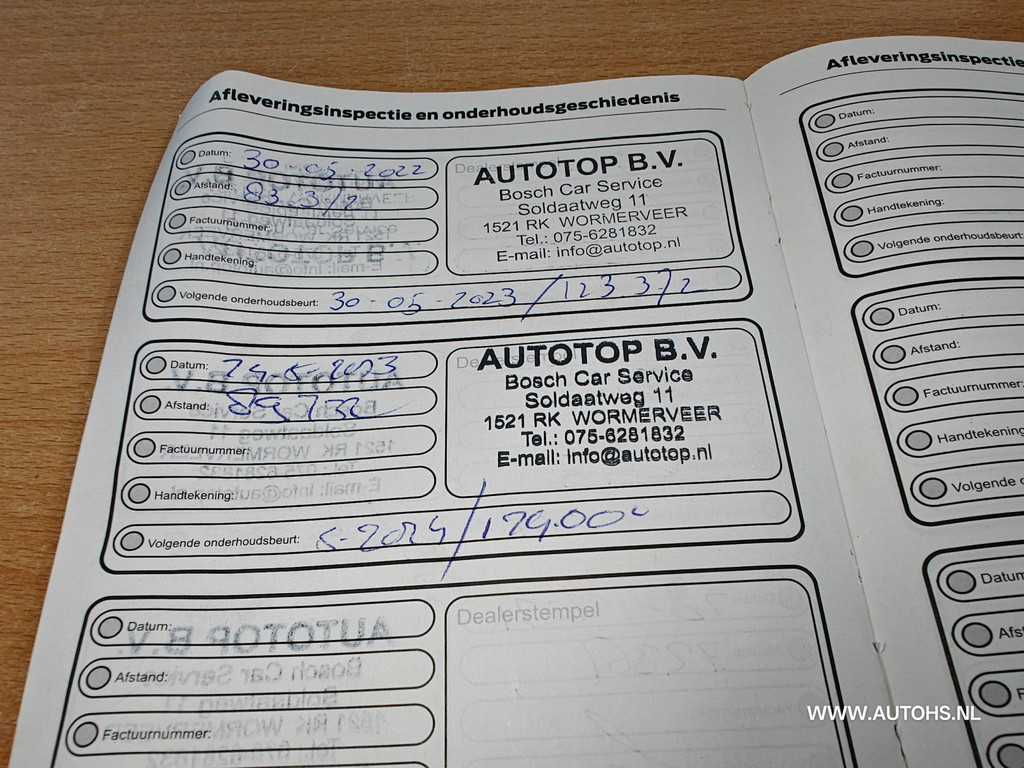 Afleveringsinspectie en onderhoudsgeschiedenis
Datum: 30-05-2022
Afstand: 83.372
Factuurnummer:
Handtekening:
AUTOTOP B.V.
Bosch Car Service
Soldaatweg 11
1521 RK WORMERVEER
Tel.: 075-6281832
E-mail: info@autotop.nl
Volgende onderhoudsbeurt: 30-05-2023/123.372
Datum: 24-5-2023
Afstand: 89.732
Factuurnummer:
Handtekening:
AUTOTOP B.V.
Bosch Car Service
Soldaatweg 11
1521 RK WORMERVEER
Tel.: 075-6281832
E-mail: info@autotop.nl
Volgende onderhoudsbeurt: 5-2024/129.000
Datum:
Afstand:
Factuurnummer:
Dealerstempel
Afleveringsinspectie
Datum:
Afstand:
Factuurnummer:
Handtekening:
Volgende onderhoudsbeurt:
Datum:
Afstand:
Factuurnummer:
Handtekening
Volgende o
Datum
Afst
F
WWW.AUTOHS.NL